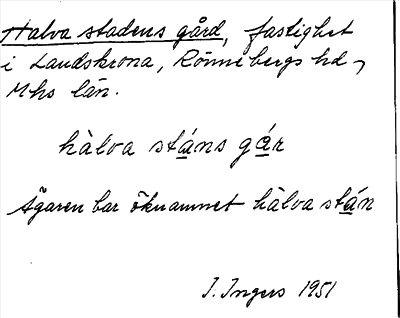 Halva stadens gård, fastighet
i Landskrona, Rönnebergs hd,
Mhs län.
hàlva stá̱ns gá̱r
Ägaren bar öknamnet hàlva stá̱n
I. Ingers 1951